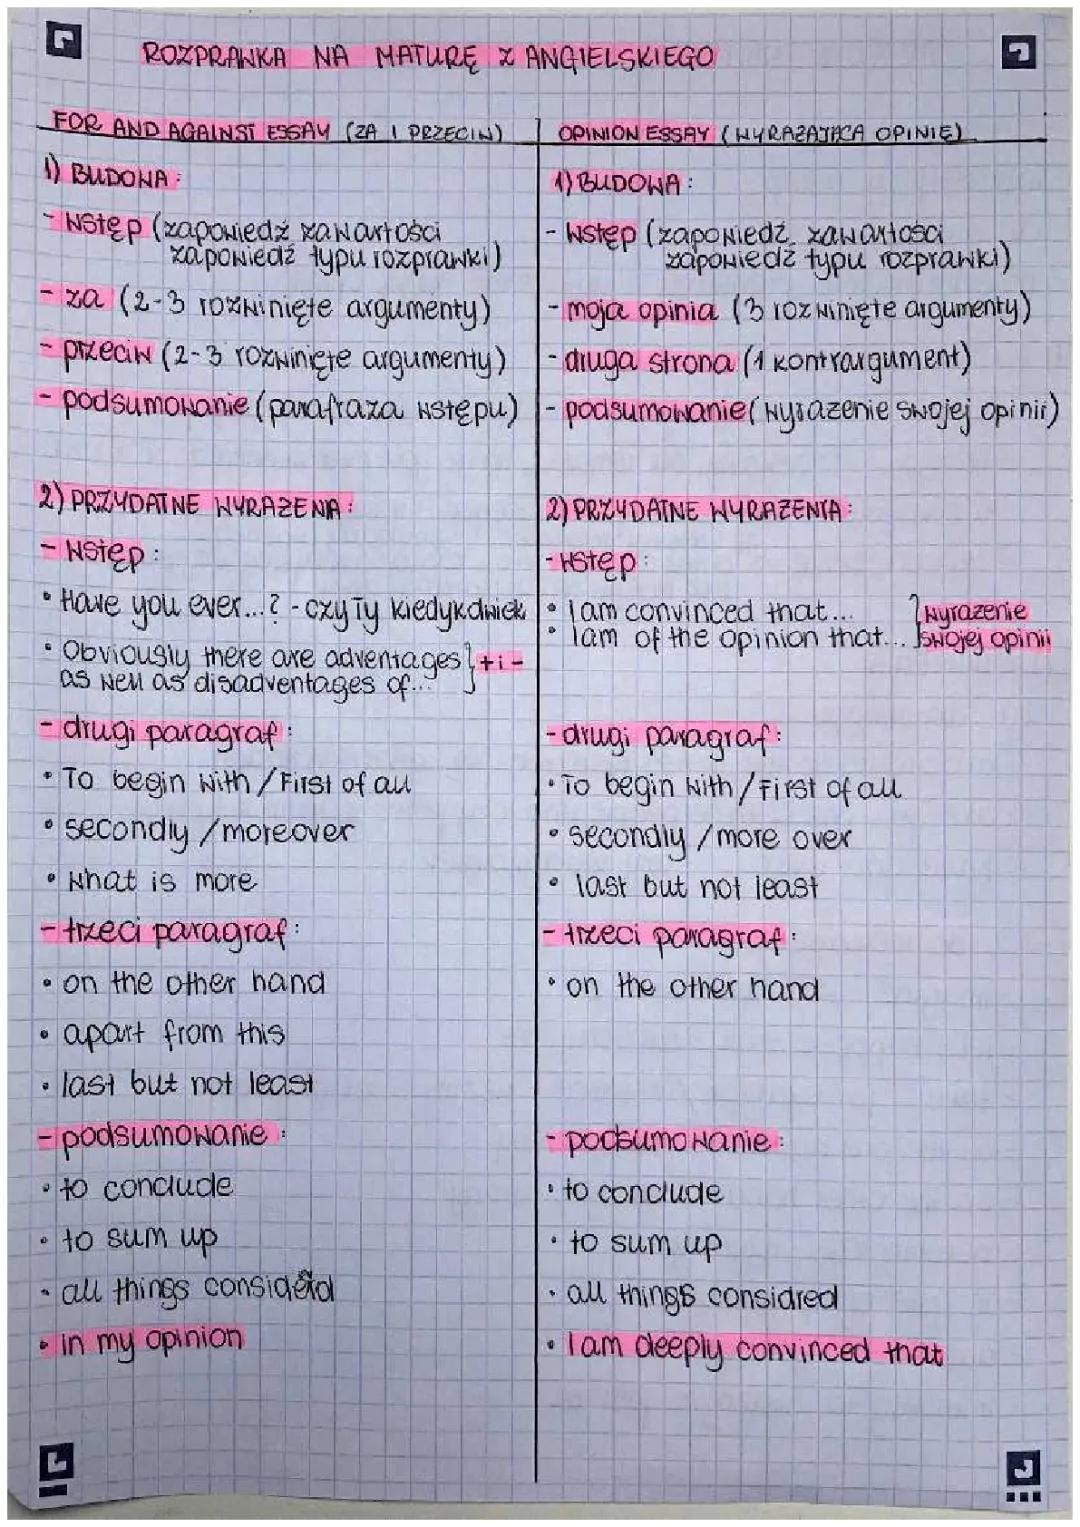 ROZPRAWKA NA MATURĘ Z ANGIELSKIEGO
FOR AND AGAINST ESSAY (ZA I PRZECIW)
1) BUDOWA:
- Wstęp (zapowiedź zawartości
zapowiedź typu rozprawki)
- za (2-3 rozwinięte argumenty)
- przeciw (2-3 rozwinięte argumenty)
- podsumowanie (parafraza wstępu)
2) PRZYDATNE WYRAŻENIA:
- Wstęp:
• Have you ever...? - czy Ty kiedykolwiek
• Obviously there are adventages
as well as disadventages of...
+ i -
- drugi paragraf:
• To begin with / First of all
• secondly / moreover
• What is more
- trzeci paragraf:
• on the other hand
• apart from this
• last but not least
- podsumowanie:
• to conclude
• to sum up
• all things considerd
• in my opinion
OPINION ESSAY (WYRAŻAJĄCA OPINIĘ)
1) BUDOWA:
- Wstęp (zapowiedź zawartości
zapowiedź typu rozprawki)
- moja opinia (3 rozwinięte argumenty)
- druga strona (1 kontrargument)
- podsumowanie (wyrażenie swojej opinii)
2) PRZYDATNE WYRAŻENIA:
- Wstęp:
• I am convinced that...
• I am of the opinion that...
wyrażenie
swojej opinii
- drugi paragraf:
• To begin with / First of all
• secondly / more over
• last but not least
- trzeci paragraf:
• on the other hand
- podsumowanie:
• to conclude
• to sum up
• all things considred
• I am deeply convinced that